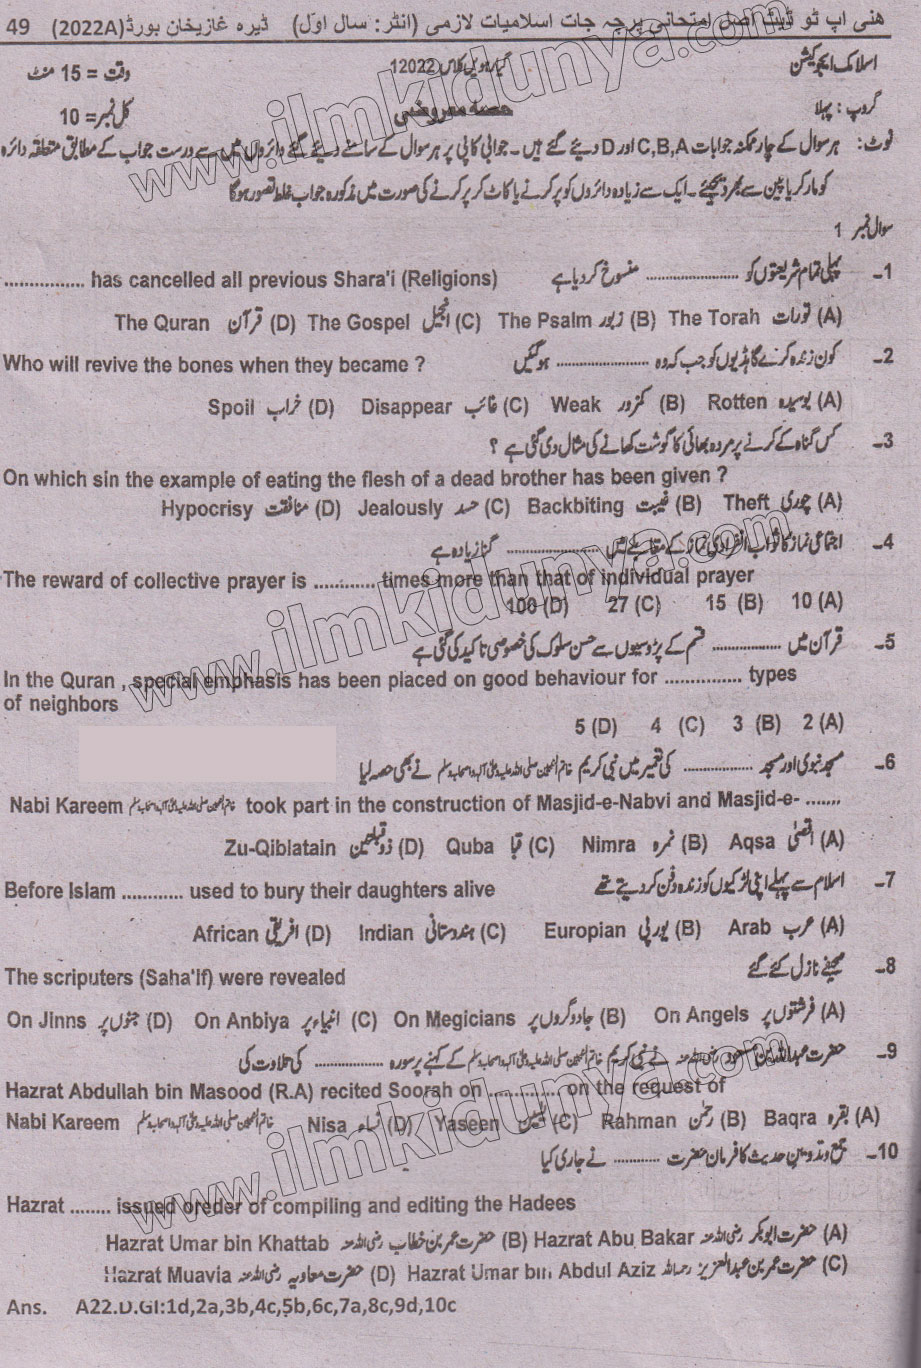 ھنی اپ ٹو ڈیٹ اصل امتحانی پرچہ جات اسلامیات لازمی (انٹر: سال اوّل) ڈیرہ غازیخان بورڈ(2022A) 49
اسلامک ایجوکیشن گیارہویں کلاس 12022 وقت = 15 منٹ
گروپ : پہلا حصہ معروضی کل نمبر= 10
نوٹ: ہر سوال کے چار ممکنہ جوابات C,B,A اور D دیئے گئے ہیں۔ جوابی کاپی پر ہر سوال کے سامنے دیئے گئے دائروں میں سے درست جواب کے مطابق متعلقہ دائرہ
کو مارکر یا پین سے بھر دیجئے۔ ایک سے زیادہ دائروں کو پر کرنے یا کاٹ کر پر کرنے کی صورت میں مذکورہ جواب غلط تصور ہوگا
سوال نمبر 1
1۔ پہلی تمام شریعتوں کو ............... منسوخ کر دیا ہے ............... has cancelled all previous Shara'i (Religions)
(A) تورات The Torah (B) زبور The Psalm (C) انجیل The Gospel (D) قرآن The Quran
2۔ کون زندہ کرے گا ہڈیوں کو جب کہ وہ ............... ہو گئیں Who will revive the bones when they became ?
(A) بوسیدہ Rotten (B) کمزور Weak (C) غائب Disappear (D) خراب Spoil
3۔ کس گناہ کے کرنے پر مردہ بھائی کا گوشت کھانے کی مثال دی گئی ہے ؟
On which sin the example of eating the flesh of a dead brother has been given ?
(A) چوری Theft (B) غیبت Backbiting (C) حسد Jealously (D) منافقت Hypocrisy
4۔ اجتماعی نماز کا ثواب انفرادی نماز کے مقابلے میں ............... گنا زیادہ ہے
The reward of collective prayer is ............ times more than that of individual prayer
(A) 10 (B) 15 (C) 27 (D) 100
5۔ قرآن میں ............... قسم کے پڑوسیوں سے حسن سلوک کی خصوصی تاکید کی گئی ہے
In the Quran , special emphasis has been placed on good behaviour for ............... types
of neighbors
(A) 2 (B) 3 (C) 4 (D) 5
6۔ مسجد نبوی اور مسجد ............... کی تعمیر میں نبی کریم خاتم النبیین صلی اللہ علیہ وعلی آلہ واصحابہ وسلم نے بھی حصہ لیا
Nabi Kareem خاتم النبیین صلی اللہ علیہ وعلی آلہ واصحابہ وسلم took part in the construction of Masjid-e-Nabvi and Masjid-e- .......
(A) اقصیٰ Aqsa (B) نمرہ Nimra (C) قبا Quba (D) ذو قبلتین Zu-Qiblatain
7۔ اسلام سے پہلے اپنی لڑکیوں کو زندہ دفن کر دیتے تھے Before Islam ............ used to bury their daughters alive
(A) عرب Arab (B) یورپی Europian (C) ہندوستانی Indian (D) افریقی African
8۔ صحیفے نازل کئے گئے The scriputers (Saha'if) were revealed
(A) فرشتوں پر On Angels (B) جادوگروں پر On Megicians (C) انبیاء پر On Anbiya (D) جنوں پر On Jinns
9۔ حضرت عبداللہ بن مسعود رضی اللہ عنہ نے نبی کریم خاتم النبیین صلی اللہ علیہ وعلی آلہ واصحابہ وسلم کے کہنے پر سورہ ............... کی تلاوت کی
Hazrat Abdullah bin Masood (R.A) recited Soorah on ............... on the request of
Nabi Kareem خاتم النبیین صلی اللہ علیہ وعلی آلہ واصحابہ وسلم (A) بقرہ Baqra (B) رحمٰن Rahman (C) یٰسین Yaseen (D) نساء Nisa
10۔ جمع و تدوین حدیث کا فرمان حضرت ........... نے جاری کیا
Hazrat ........ issued oreder of compiling and editing the Hadees
(A) حضرت ابو بکر رضی اللہ عنہ Hazrat Abu Bakar (B) حضرت عمر بن خطاب رضی اللہ عنہ Hazrat Umar bin Khattab
(C) حضرت عمر بن عبدالعزیز رحمہ اللہ Hazrat Umar bin Abdul Aziz (D) حضرت معاویہ رضی اللہ عنہ Hazrat Muavia
Ans. A22.D.GI:1d,2a,3b,4c,5b,6c,7a,8c,9d,10c
www.ilmkidunya.com
www.ilmkidunya.com
www.ilmkidunya.com